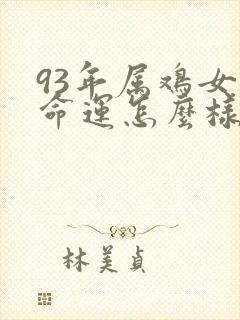 93年属鸡女
命運怎麼樣
林美貞